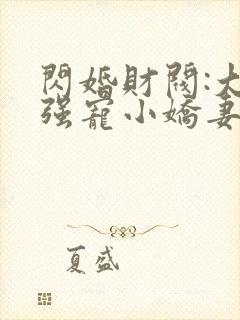 閃婚財閥:大
强寵小嬌妻
夏盛